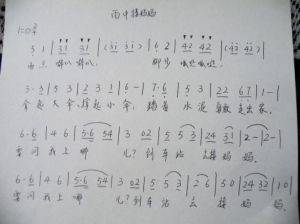 雨中接妈妈
1=D 2/4
3 1 | 3 1 3 1 | (3 1 3 1) | 6 2 | 4 2 4 2 | (4 2 4 2)
雨点 脚步
5·3 | 5 3 | 2 3 1 | 6 - | 7·6 | 5 3 | 2 2 6 7 | 1 - |
拿起大伞，撑起小伞，踏着水泥走出家。
6·6 | 4 6 | 5·6 5 4 | 3 0 2 | 5 5 3 | 2 4 3 1 | 2 - | 2 - |
要问我上哪儿？到车站去接妈妈
6·6 | 4 6 | 5·6 5 4 | 3 0 2 | 5 5 3 | 2 6 | 5 0 | 2 4 3 2 | 1 0
要问我上哪儿？到车站去接妈妈。